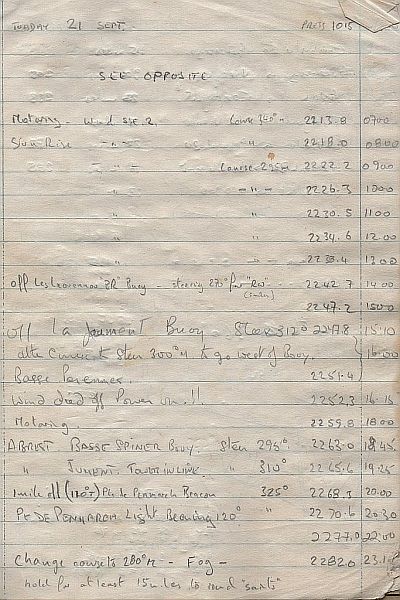 TUESDAY 21 SEPT. PRESS 1015
SEE OPPOSITE
Motoring - Wind SSE 2. Course 340° M 2213.8 0700
Sun Rise -"- " 2218.0 0800
" - " - Course 295 M 2222.2 0900
" -"- 2226.3 1000
" " 2230.5 1100
" " 2234.6 12.00
" " 1300
off "BR" Buoy - steering 270° for 2242.7 14.00
2247.2 1500
off La Buoy. Steer 312° 2247.8 15.10
Steer 300° M to go west of Buoy. 16.00
Basse 2251.4
Wind died off Power on.!! 2252.3 16.15
Motoring. 2259.8 18.00
ABREAST BASSE SPINER Buoy. Steer 295° 2263.0 18.45.
" JUMENT. " 310° 2265.6 19.25
1 mile off (110°T) Pt de Penmarch Beacon 325° 2268.3 20.00
Pt DE PENMARCH Light Bearing 120° " 2270.6 20.30
2277.0 22.00
Change course to 280° M - Fog - 2282.0 23.1
hold for at least 15 miles to round "saints"